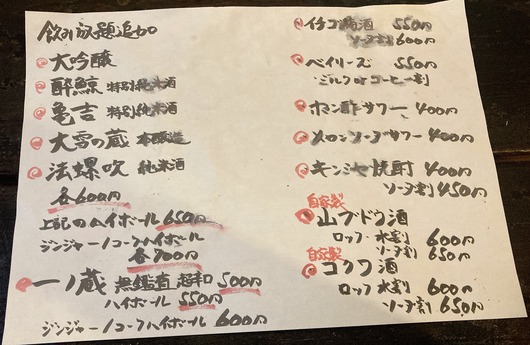 飲み放題追加
大吟醸
酔鯨 特別純米酒
亀吉 特別純米酒
大雪の蔵 本醸造
法螺吹 純米酒
各600円
上記のハイボール 650円
ジンジャー/コークハイボール
各700円
一ノ蔵 無鑑査 超辛口 500円
ハイボール 550円
ジンジャー/コークハイボール 600円
イチゴ 酒 550円
ソーダ割 600円
ベイリーズ 550円
ミルク or コーヒー割
ホワイト酢サワー 400円
メロンソーダサワー 400円
キンミヤ焼酎 400円
ソーダ割 450円
自家製
山ブドウ酒
ロック 水割 600円
ソーダ割 650円
自家製
コクワ酒
ロック 水割 600円
ソーダ割 650円